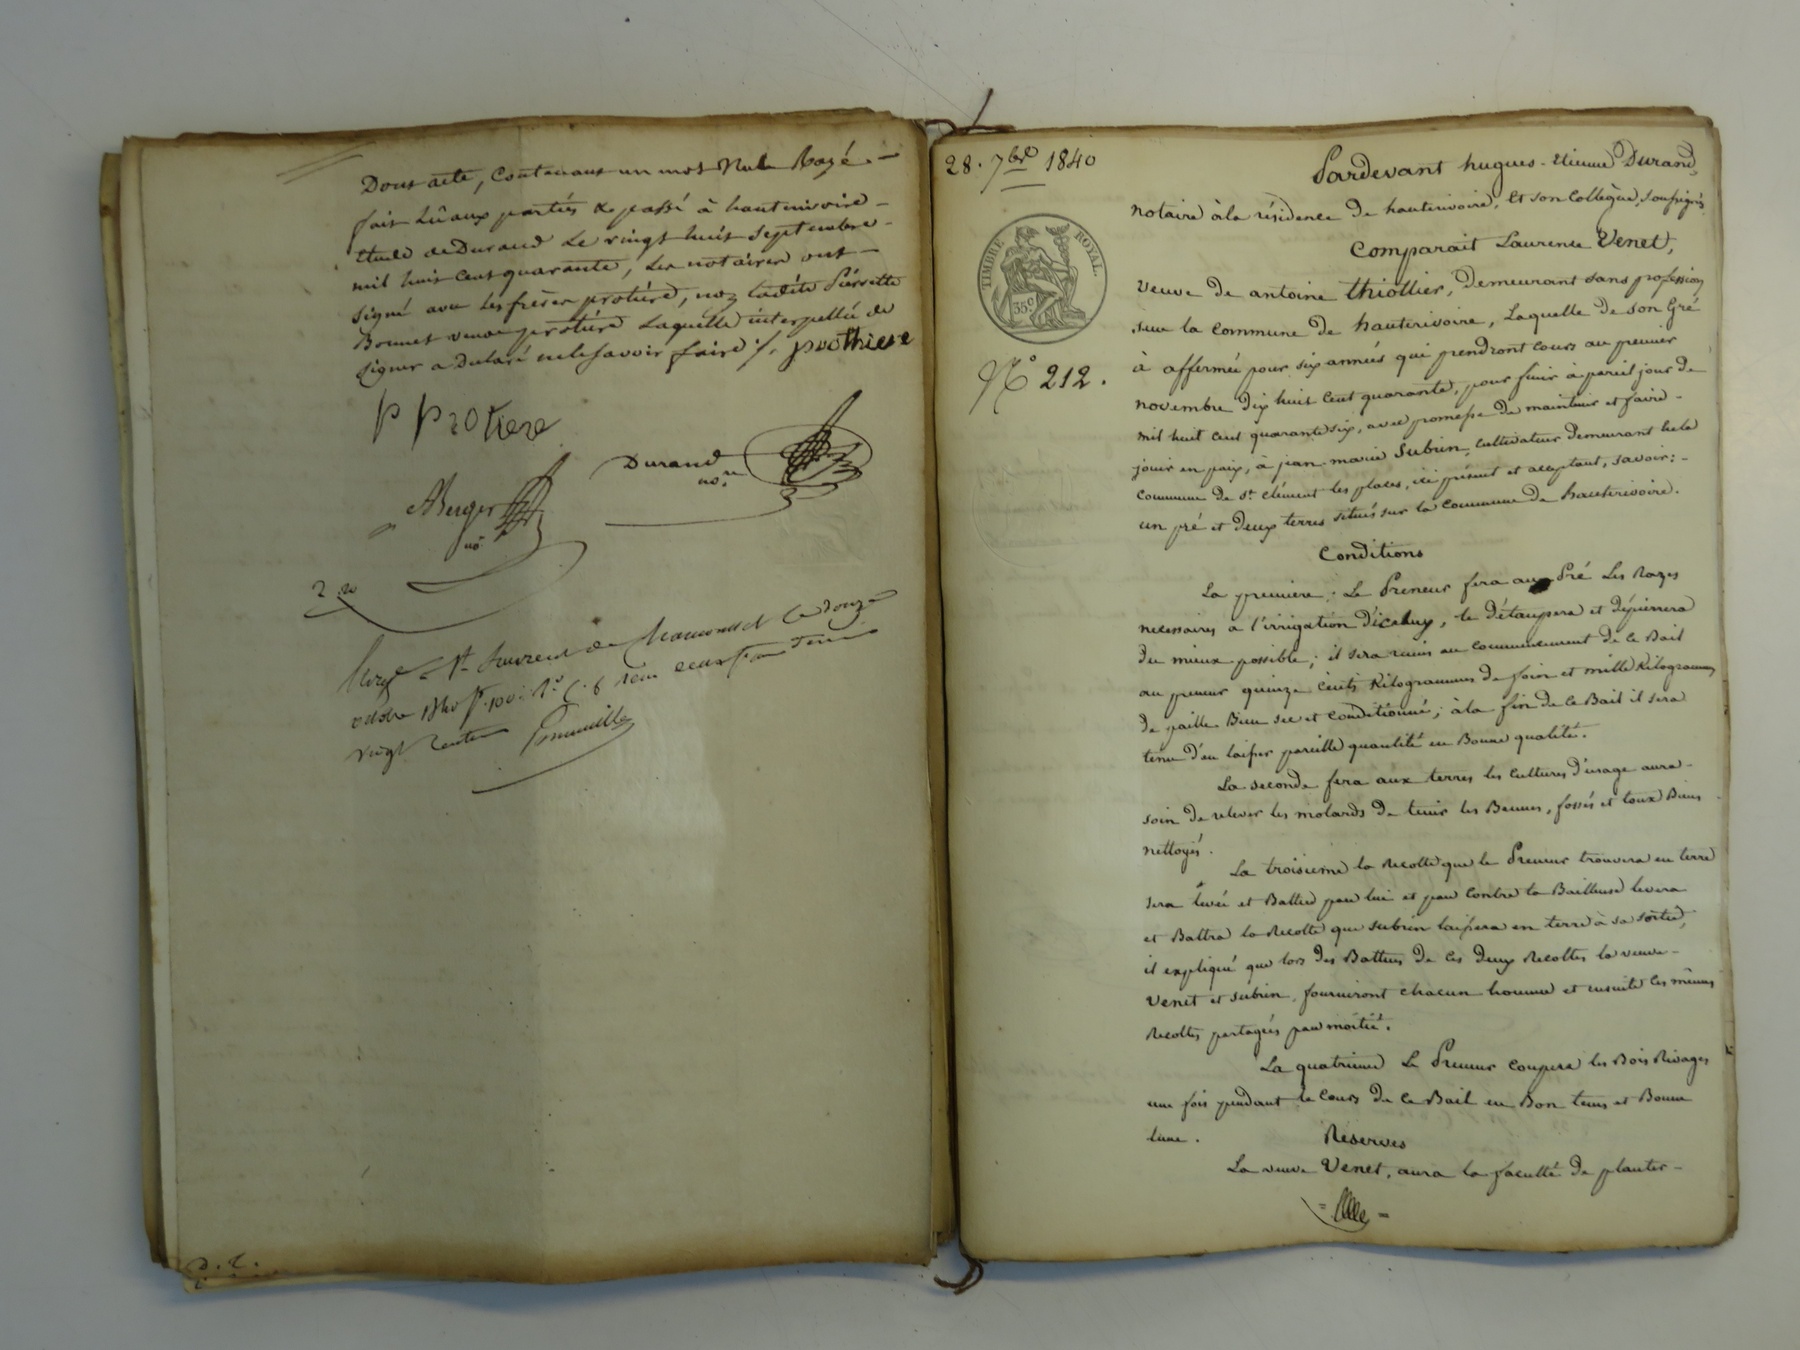 Dont acte, Contenant un mot Nul Rayé. —
fait Lû aux parties & passé à hauterivoire –
Etude de Durand Le vingt huit septembre –
mil huit Cent quarante, Les notaires ont –
signé avec Les frères protière, non Ladite Pierrette
Bonnet veuve protière Laquelle interpellée de
signer a Déclaré ne le savoir faire ./. prothiere
P Protiere
Durand
no.re
ABerger
no.
2 20
St Laurent de Chamousset Le douze
octobre 1840 f. 100
vingt centimes
D. C.
28. 7bre 1840
TIMBRE ROYAL.
35c
N° 212.
Pardevant hugues-Etienne Durand,
notaire à la résidence de hauterivoire, et son Collègue, soussignés
Comparait Laurence Venet,
veuve de antoine thiollier, Demeurant sans profession
sur la commune de hauterivoire, Laquelle de son Gré
à affermée pour six années qui prendront cours au premier
novembre Dix huit Cent quarante, pour finir à pareil jour de
mil huit cent quarante six, avec promesse de maintenir et faire –
jouir en paix, à jean-marie Subrin, cultivateur demeurant en la
commune de St clément les places, ici présent et acceptant, savoir: –
un pré et Deux terres situés sur la Commune de hauterivoire.
Conditions
La première: Le Preneur fera au Pré Les Razes
necessaires à l'irrigation D'icelui, le Détaupera et Dépierrera
du mieux possible; il sera remis au commencement de ce Bail
au preneur quinze cents Kilogrammes de foin et mille Kilogrammes
de paille Bien sec et conditionné; à la fin de ce Bail il sera
tenu D'en laisser pareille quantité en Bonne qualité.
La seconde fera aux terres les cultures d'usage aura –
soin de relever les molards de tenir les Bennes, fossés et toux Biens
nettoyés.
La troisieme la Recolte que le Preneur trouvera en terre
sera levée et Battue par lui et par contre la Bailleuse levera
et Battra la Recolte que subrin laissera en terre à sa sortie,
il expliqué que lors des Battues De ces deux Recoltes la veuve –
Venet et subrin, fourniront chacun homme et ensuite les mêmes
Recoltes partagées par moitié.
La quatrieme Le Preneur coupera les Bois Rivages
une fois pendant le cours De ce Bail en Bon tems et Bonne
lune.
Réserves
La veuve Venet, aura la faculté De planter –